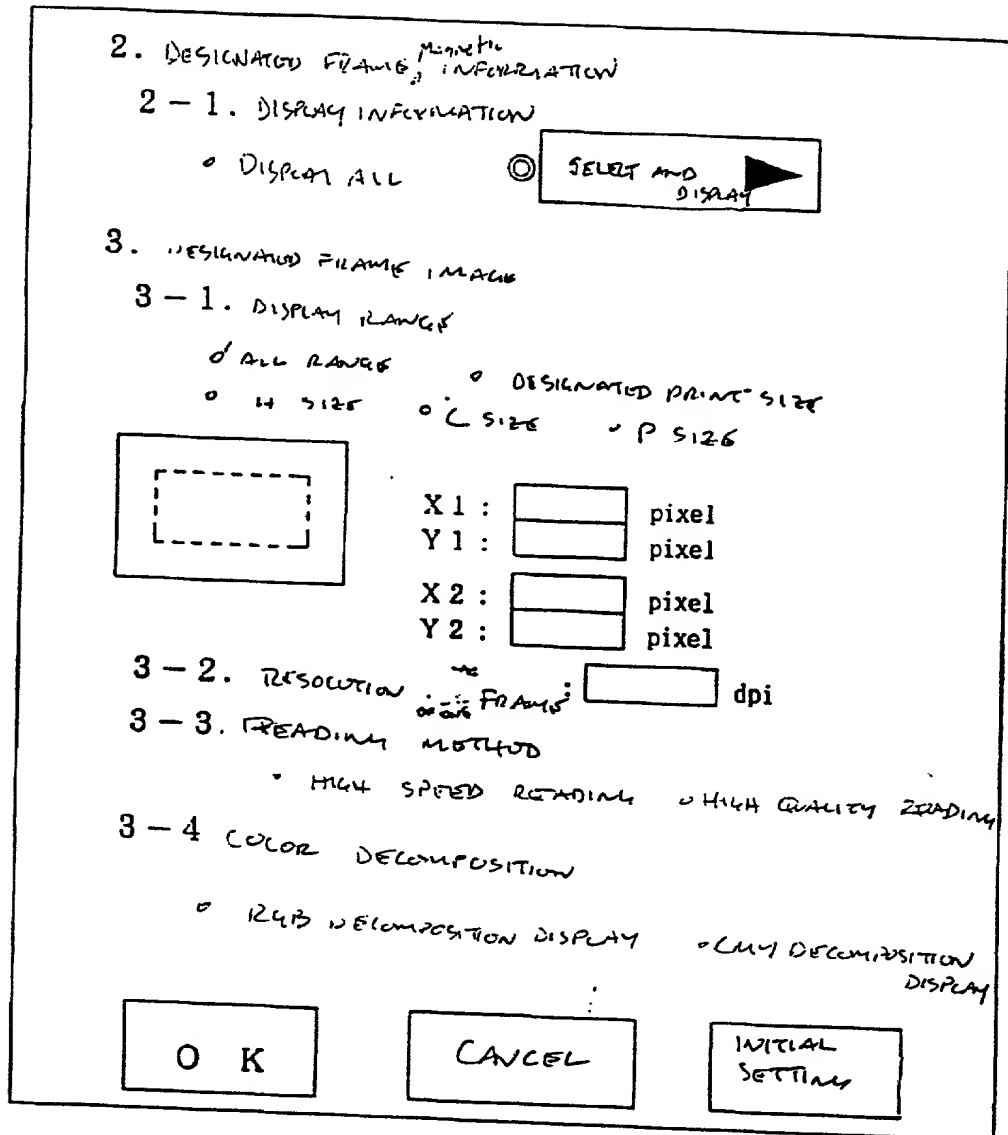 2. DESIGNATED FRAME, Magnetic INFORMATION
2-1. DISPLAY INFORMATION
• DISPLAY ALL ◎ SELECT AND DISPLAY
3. DESIGNATED FRAME IMAGE
3-1. DISPLAY RANGE
o ALL RANGE • DESIGNATED PRINT SIZE
• H SIZE • C SIZE • P SIZE
X1 : pixel
Y1 : pixel
X2 : pixel
Y2 : pixel
3-2. RESOLUTION FRAME : dpi
3-3. READING METHOD
• HIGH SPEED READING o HIGH QUALITY READING
3-4 COLOR DECOMPOSITION
• RGB DECOMPOSITION DISPLAY • CMY DECOMPOSITION
DISPLAY
OK CANCEL INITIAL
SETTING